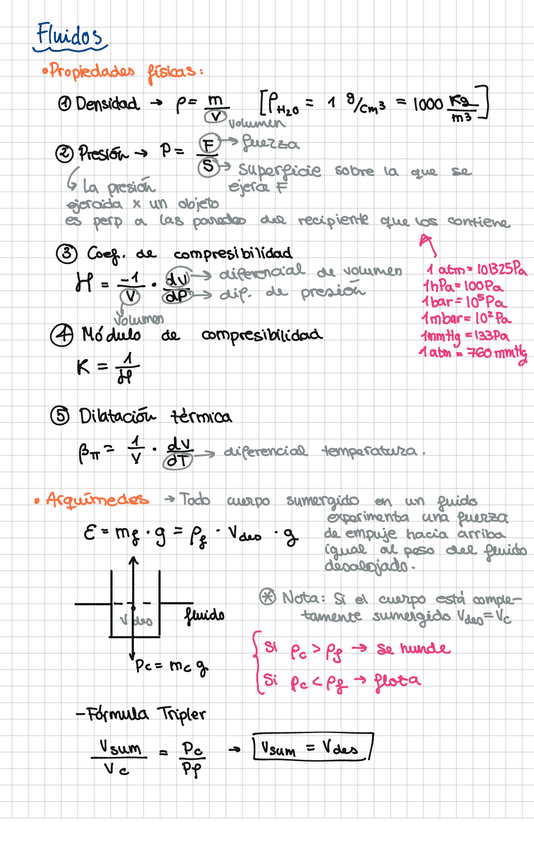 Fluidos
• Propiedades físicas:
① Densidad → ρ = m/V [ρH₂O = 1 g/cm³ = 1000 Kg/m³]
volumen
② Presión → P = F/S
→ fuerza
→ superficie sobre la que se
ejerce F
↳ La presión
ejercida x un objeto
es perp a las paredes del recipiente que los contiene
③ Coef. de compresibilidad
H = -1/V · dV/dP
→ diferencial de volumen
→ dif. de presión
volumen
1 atm = 101325Pa
1hPa = 100Pa
1bar = 10⁵ Pa
1mbar = 10² Pa
1mmHg = 133Pa
1 atm = 760 mmHg
④ Módulo de compresibilidad
K = 1/H
⑤ Dilatación térmica
βπ = 1/V · dV/dT → diferencial temperatura.
• Arquímedes → Todo cuerpo sumergido en un fluido
experimenta una fuerza
de empuje hacia arriba
igual al peso del fluido
desalojado.
E = mf · g = ρf · Vdes · g
Vdes
fluido
Pc = mc g
⊛ Nota: Si el cuerpo está comple-
tamente sumergido Vdes = Vc
Si ρc > ρf → se hunde
Si ρc < ρf → flota
- Fórmula Tripler
Vsum/Vc = ρc/ρf → Vsum = Vdes